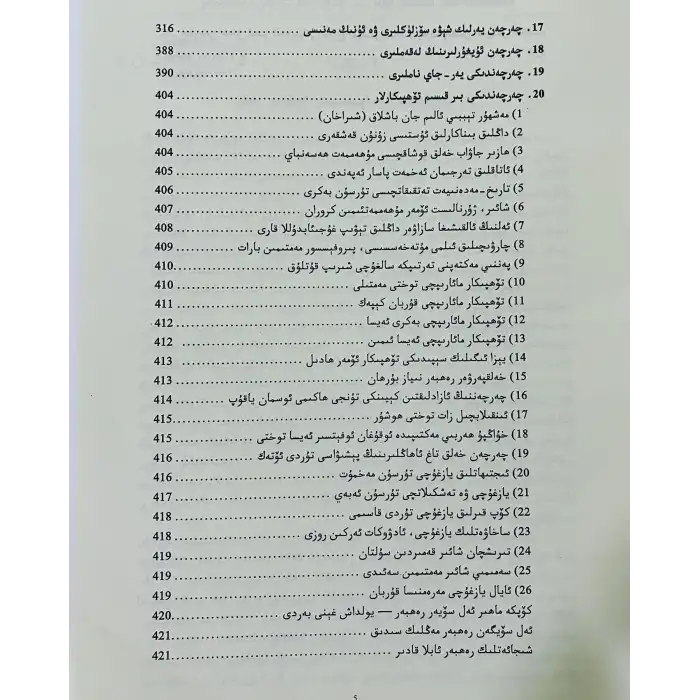 17. چەرچەن يەرلىك شېۋە سۆزلۈكلىرى ۋە ئۇنىڭ مەنىسى ........ 316
18. چەرچەن ئۇيغۇرلىرىنىڭ لەقەملىرى ........ 388
19. چەرچەندىكى يەر-جاي ناملىرى ........ 390
20. چەرچەندىكى بىر قىسىم تۆھپىكارلار ........ 404
1) مەشھۇر تېبىبىي ئالىم جان باشلاق (شىراخان) ........ 404
2) داڭلىق بىناكارلىق ئۇستىسى زۇنۇن قەشقەرى ........ 404
3) ھازىر جاۋاب خەلق قوشاقچىسى مۇھەممەت ھەسەنباي ........ 404
4) ئاتاقلىق تەرجىمان ئەخمەت پاسار ئەپەندى ........ 405
5) تارىخ-مەدەنىيەت تەتقىقاتچىسى تۇرسۇن بەكرى ........ 406
6) شائىر، ژۇرنالىست ئۆمەر مۇھەممەتئىمىن كروران ........ 407
7) ئەلنىڭ ئالقىشىغا سازاۋەر داڭلىق تېۋىپ غۇجىئابدۇللا قارى ........ 408
8) چارۋىچىلىق ئىلمى مۇتەخەسسىسى، پىروفېسسور مەمتىمىن بارات ........ 409
9) پەننىي مەكتەپنى تەرتىپكە سالغۇچى شىرىپ قۇتلۇق ........ 410
10) تۆھپىكار مائارىپچى توختى مەمتىلى ........ 410
11) تۆھپىكار مائارىپچى قۇربان كېپەك ........ 411
12) تۆھپىكار مائارىپچى بەكرى ئەيسا ........ 412
13) تۆھپىكار مائارىپچى ئەيسا ئىمىن ........ 412
14) يېزا ئىگىلىك سېپىدىكى تۆھپىكار ئۆمەر ھادىل ........ 413
15) خەلقپەرۋەر رەھبەر نىياز بۇرھان ........ 413
16) چەرچەننىڭ ئازادلىقتىن كېيىنكى تۇنجى ھاكىمى ئوسمان ياقۇپ ........ 414
17) ئىنقىلابچىل زات توختى ھوشۇر ........ 415
18) خۇاڭپۇ ھەربىي مەكتىپىدە ئوقۇغان ئوفېتسىر ئەيسا توختى ........ 415
19) چەرچەن خەلق تاغ ئاھاڭلىرىنىڭ پېشىۋاسى تۇردى ئۆتەك ........ 416
20) ئىجتىھاتلىق يازغۇچى تۇرسۇن مەخمۇت ........ 416
21) يازغۇچى ۋە تەشكىلاتچى تۇرسۇن ئەبەي ........ 417
22) كۆپ قىرلىق يازغۇچى تۇردى قاسىمى ........ 418
23) ساخاۋەتلىك يازغۇچى، ئادۋوكات ئەركىن روزى ........ 418
24) تىرىشچان شائىر قەمىردىن سۇلتان ........ 419
25) سەمىمىي شائىر مەمتىمىن سەئىدى ........ 419
26) ئايال يازغۇچى مەرەمنىسا قۇربان ........ 419
كۆپكە ماھىر ئەل سۆيەر رەھبەر — يولداش غېنى بەردى ........ 420
ئەل سۆيگەن رەھبەر مەڭلىك سىدىق ........ 421
شىجائەتلىك رەھبەر ئابلا قادىر ........ 421
5